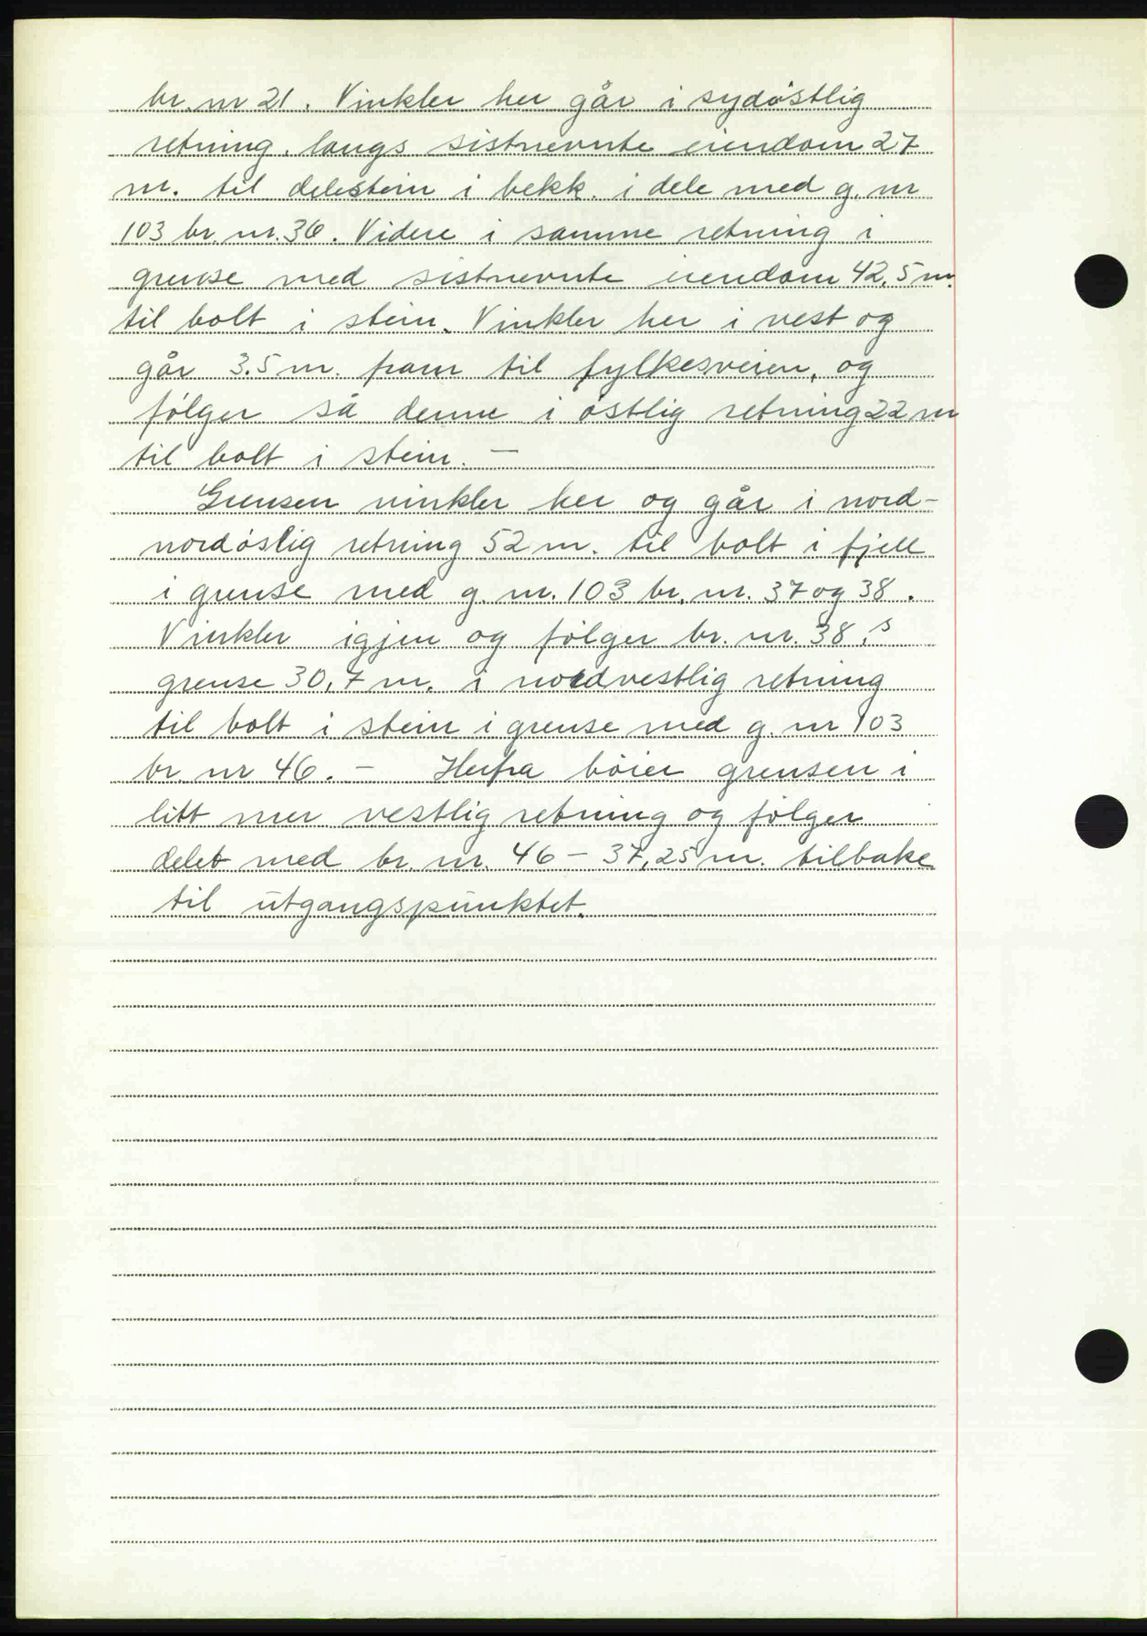 br. nr 21. Vinkler her går i sydøstlig
retning, langs sistnevnte eiendom 27
m. til delestein i bekk. i dele med g. nr
103 br. nr. 36. Videre i samme retning i
grense med sistnevnte eiendom 42,5 m.
til bolt i stein. Vinkler her i vest og
går 3.5 m. fram til fylkesveien, og
følger så denne i østlig retning 22 m
til bolt i stein. —
Grensen vinkler her og går i nord-
nordøslig retning 52 m. til bolt i fjell
i grense med g. nr. 103 br. nr. 37 og 38.
Vinkler igjen og følger br. nr. 38,s
grense 30,7 m. i nordvestlig retning
til bolt i stein i grense med g. nr 103
br. nr 46. — Herfra bøier grensen i
litt mer vestlig retning og følger
delet med br. nr. 46 — 37,25 m. tilbake
til utgangspunktet.